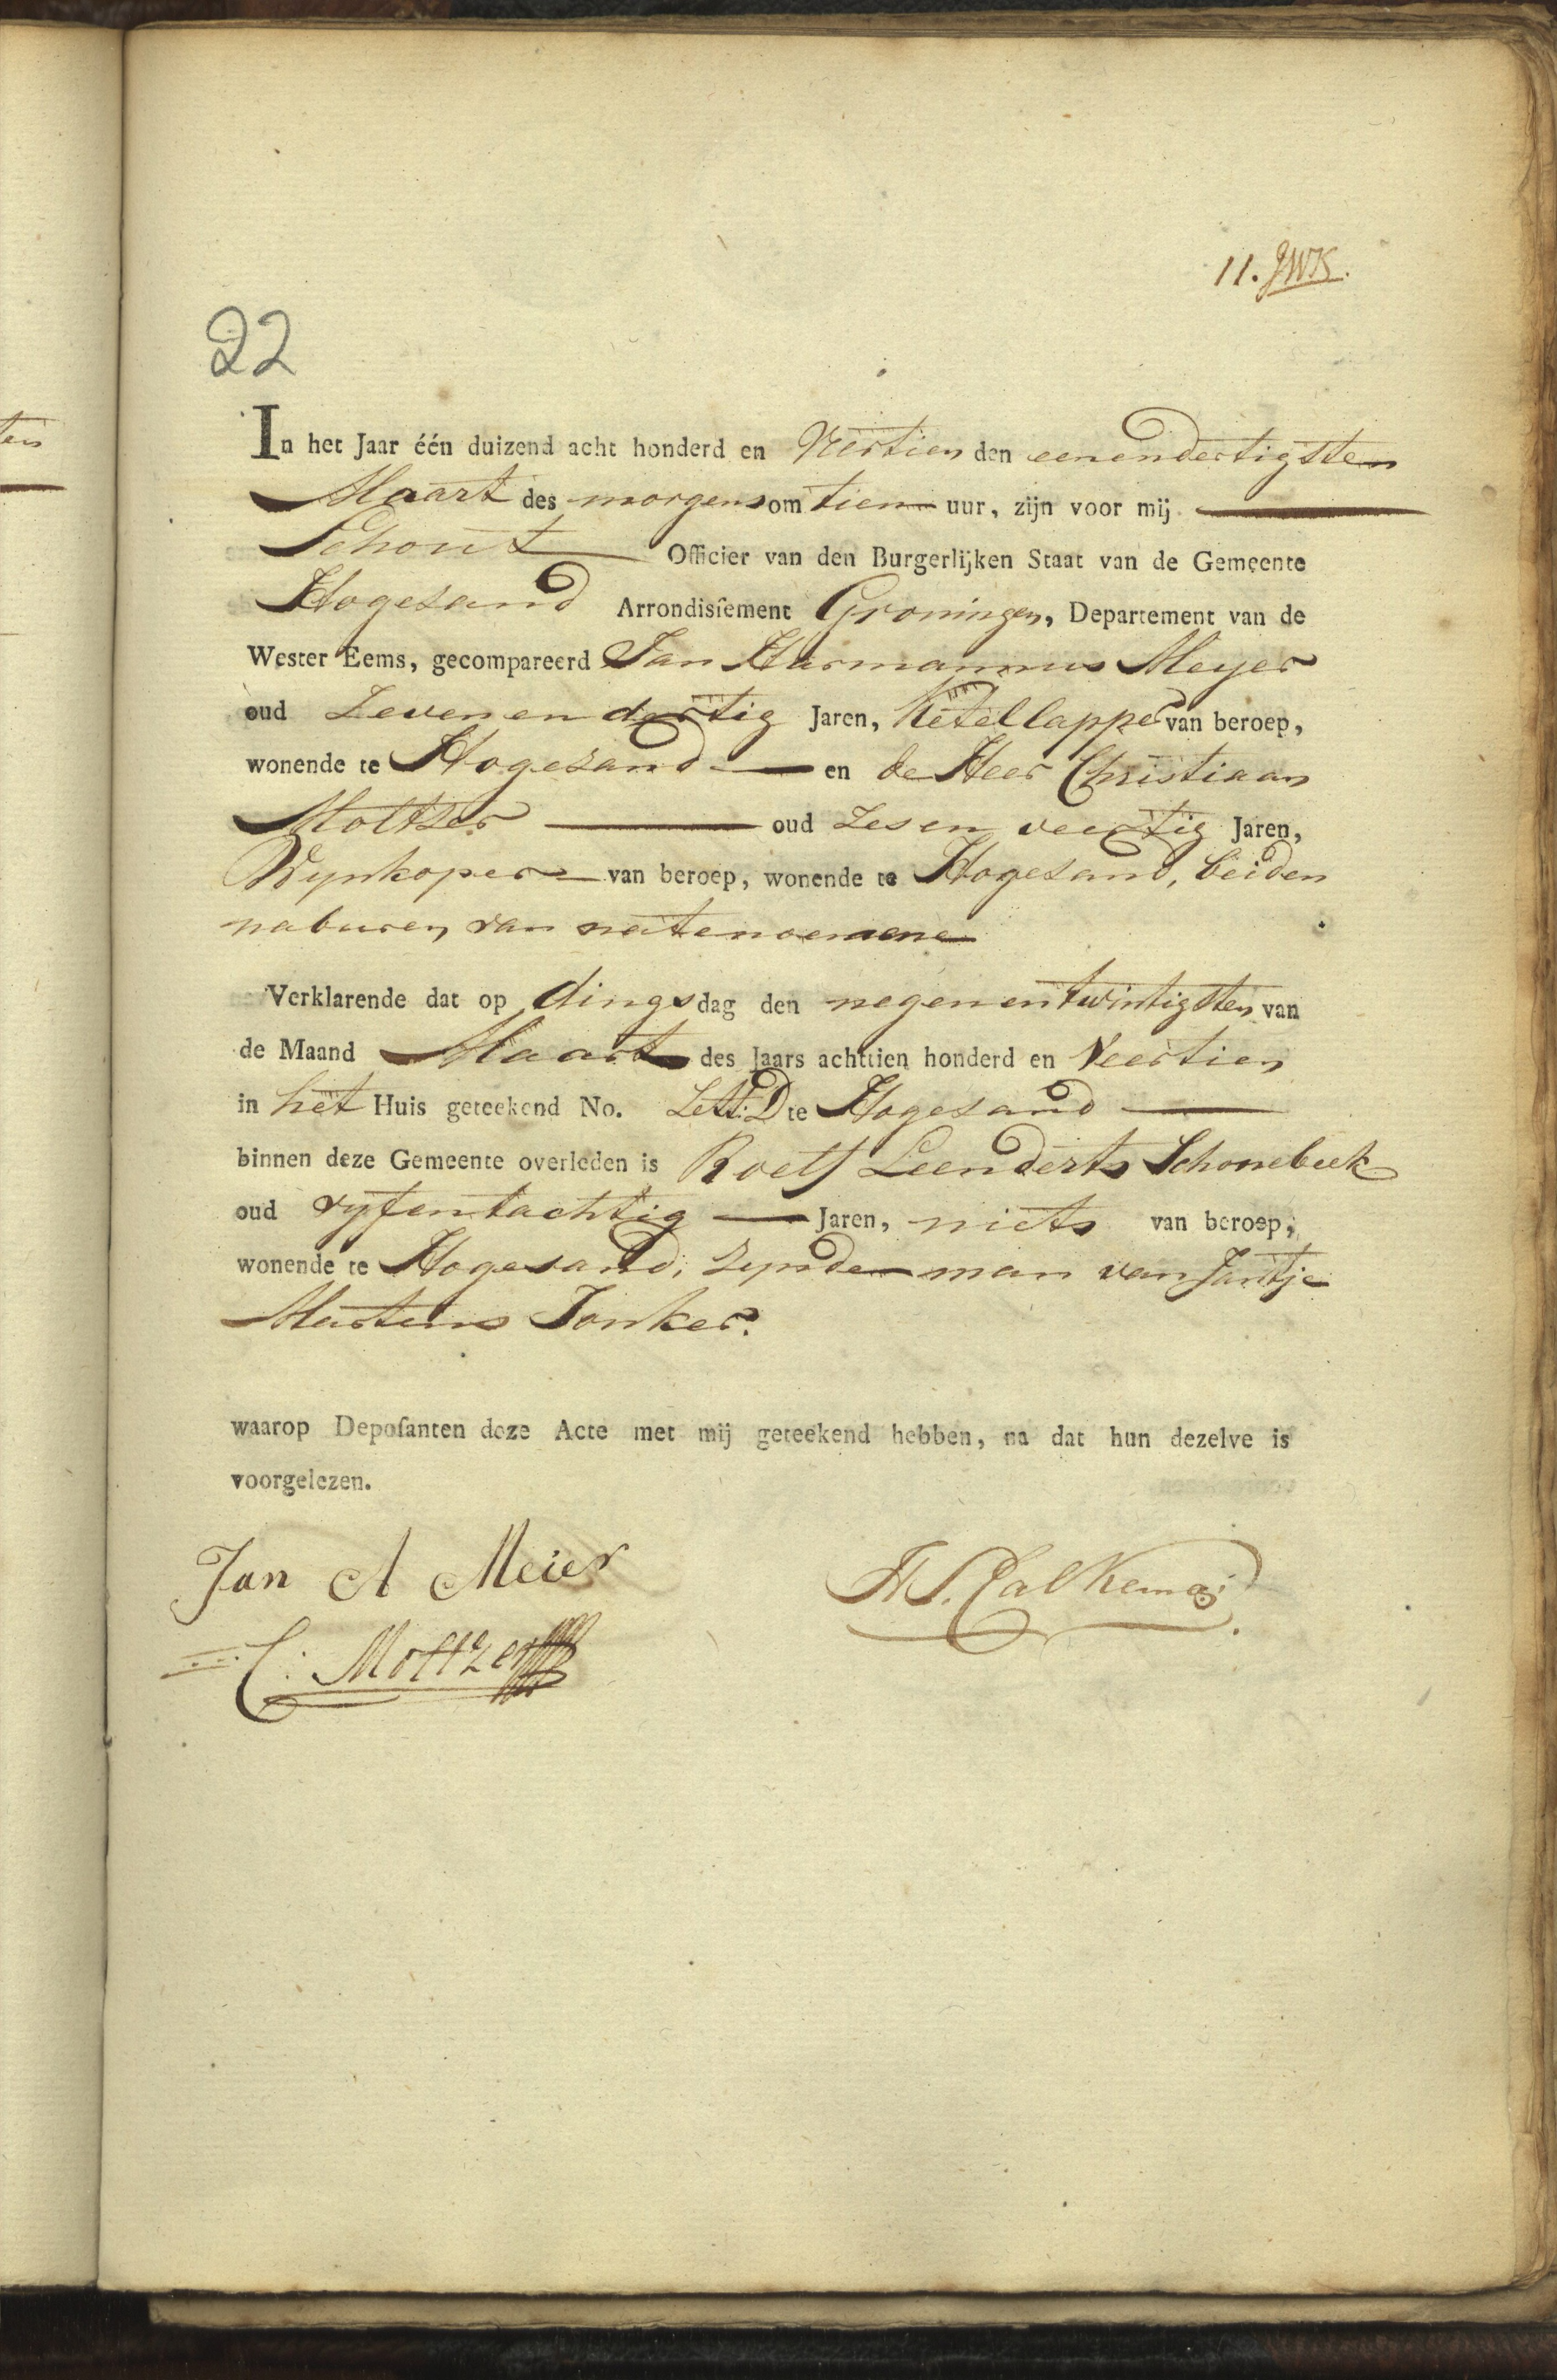 11. JWK.
22
In het Jaar één duizend acht honderd en Veertien den eenendertigsten
Maart des morgens om tien uur, zijn voor mij
Schout Officier van den Burgerlijken Staat van de Gemeente
Hogesand Arrondisſement Groningen, Departement van de
Wester Eems, gecompareerd Jan Harmannus Meyer
oud Zeven en dertig Jaren, Ketellapper van beroep,
wonende te Hogesand en de Heer Christiaan
Moltzer oud Zes en veertig Jaren,
Wynkoper van beroep, wonende te Hogesand, beiden
naburen van
Verklarende dat op dingsdag den negen en twintigsten van
de Maand Maart des Jaars achttien honderd en Veertien
in het Huis geteekend No. Lett: D te Hogesand
binnen deze Gemeente overleden is Roelf Leenderts Schonebeek
oud vyfentachtig Jaren, niets van beroep,
wonende te Hogesand, zynde man van Jantje
Martens Jonker.
waarop Depoſanten deze Acte met mij geteekend hebben, na dat hun dezelve is
voorgelezen.
Jan A Meier
H S. Calkema
C: Moltzer